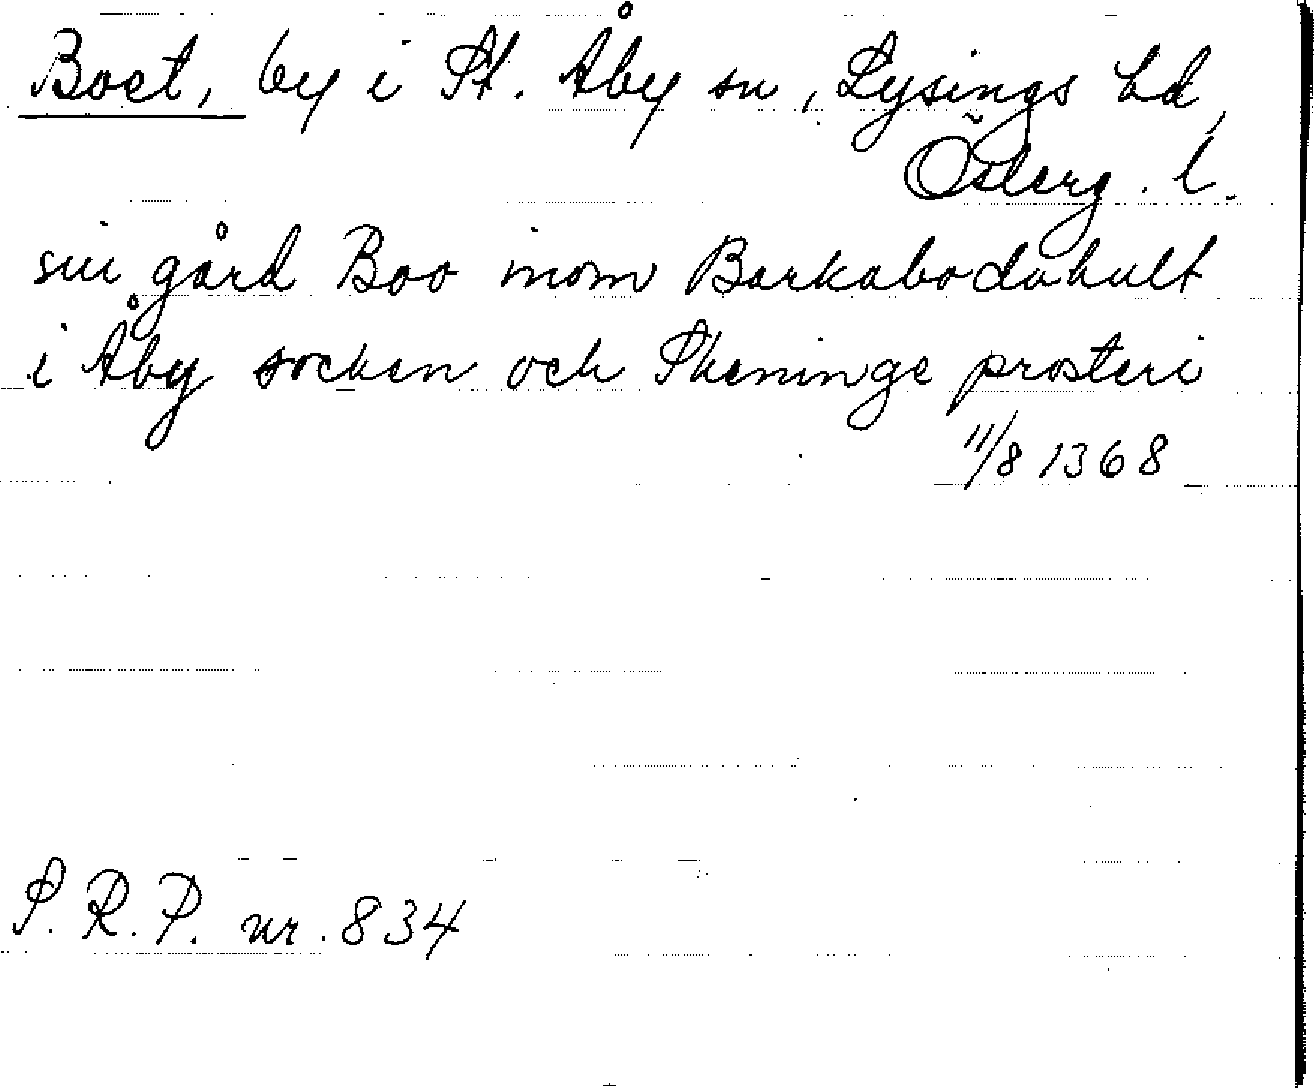 Boet, by i St. Åby sn, Lysings hd,
Österg. l.
sin gård Boo inom Barkabodahult
i Åby socken och Skeninge prosteri
11/8 1368
S.R.P. nr. 834